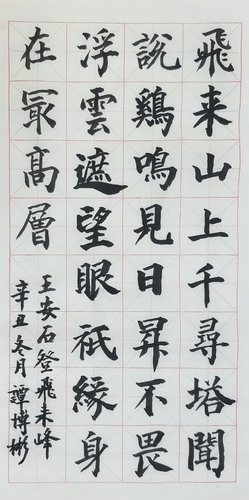 飛来山上千尋塔聞
説鷄鳴見日昇不畏
浮雲遮望眼祇緣身
在冣高層
王安石登飛来峰
辛丑冬月譚博彬